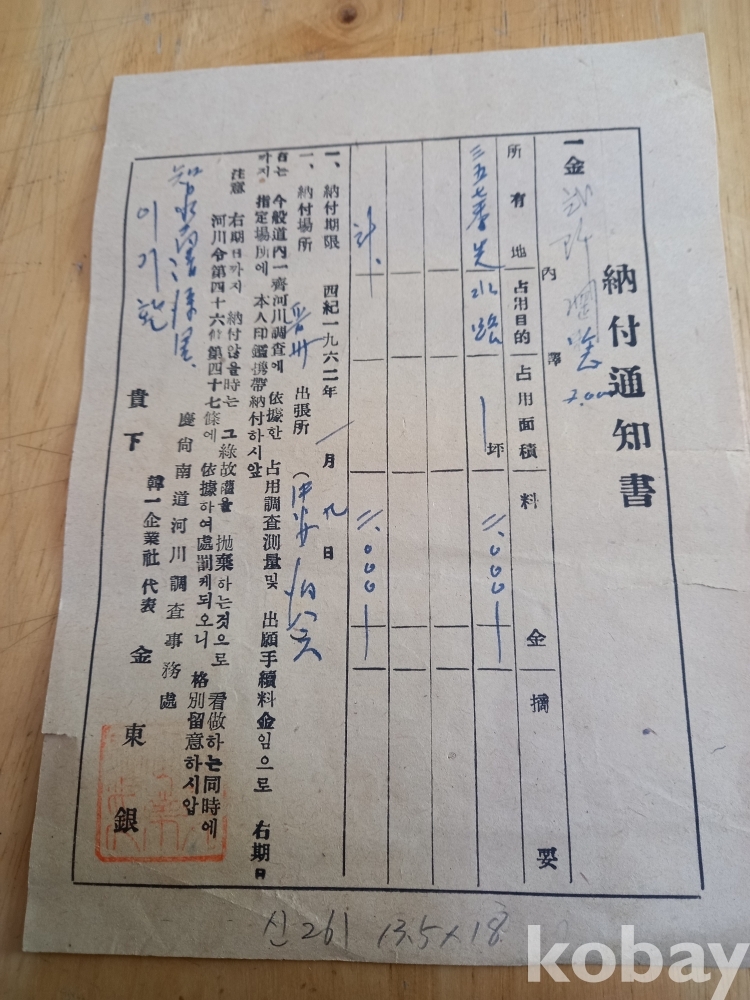 納付通知書
一金
內譯
所有地 占用目的 占用面積 料金 摘要
三五七番 水路 一坪 二.000
計. 二.000
一、納付期限 西紀一九六二年 一月 九日
一、納付場所 晋州 出張所 (
右는 今般道內一齊河川調査에 依據한 占用調査測量및 出願手續料金임으로 右期日
까지 指定場所에 本人印鑑携帶納付하시압
注意 右期日까지 納付않을時는 그緣故權을 抛棄하는것으로 看做하는同時에
河川令第四十六條第四十七條에 依據하여處罰케되오니 格別留意하시압
慶尙南道河川調査事務處
韓一企業社 代表 金東銀
이기
貴下
신261 13.5×18
kobay